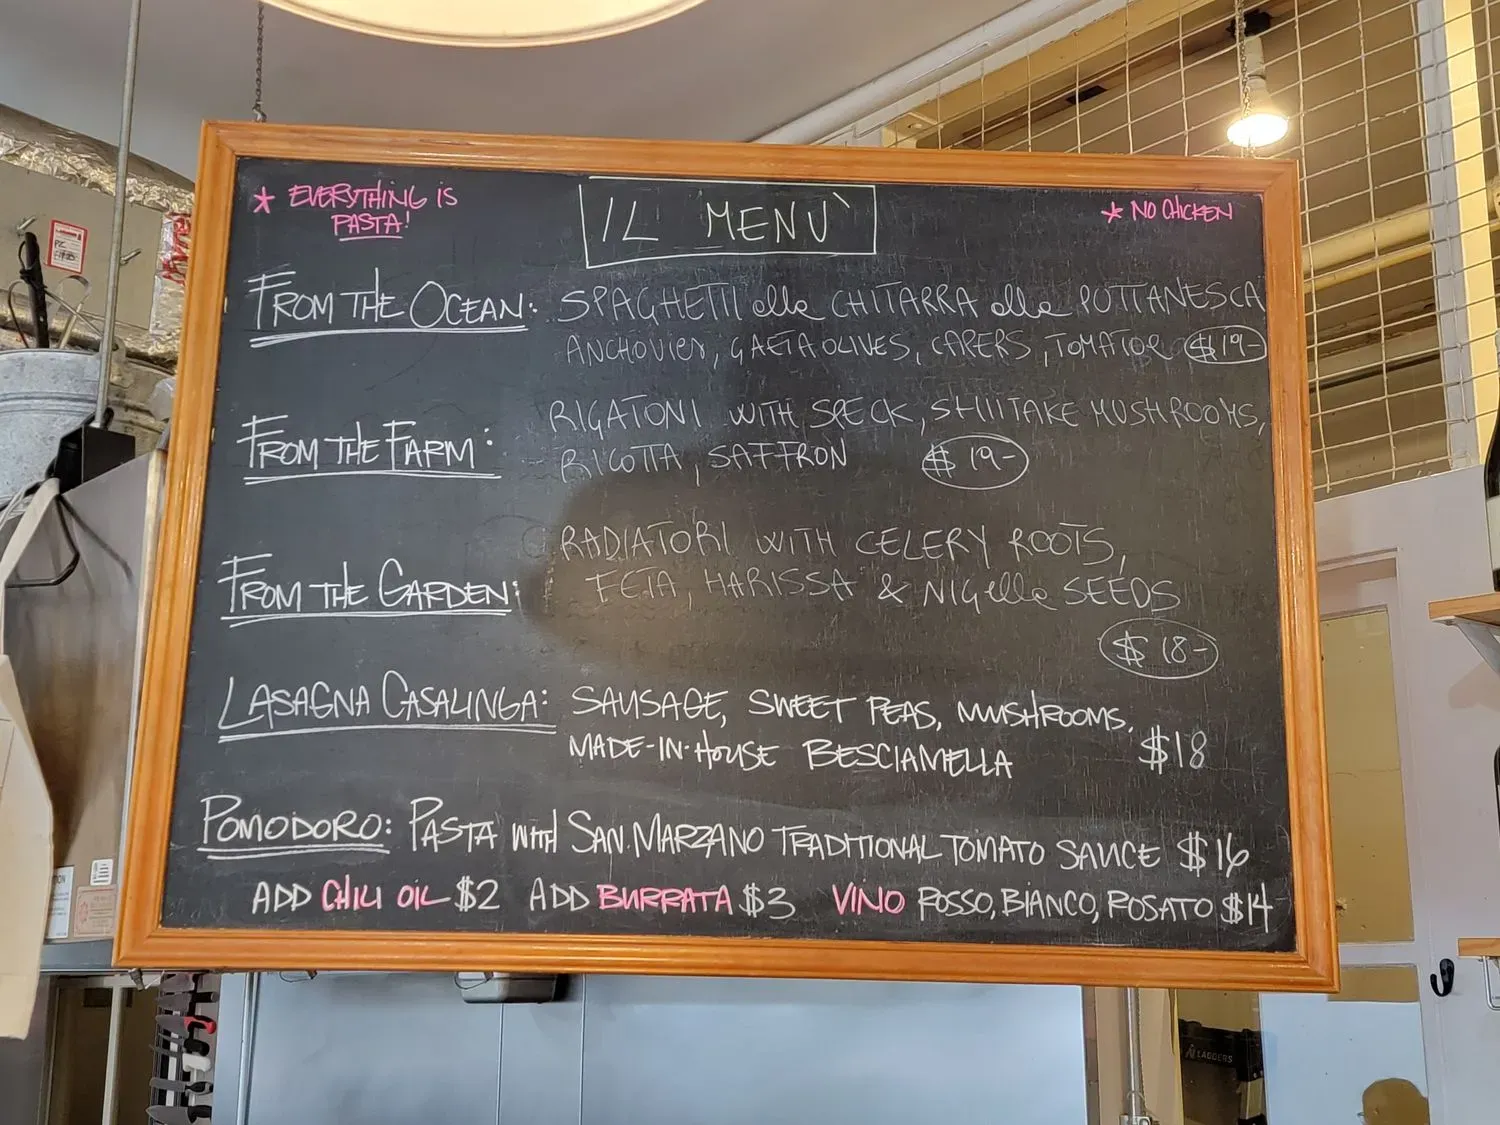 * EVERYTHING IS
PASTA!
IL MENU`
* NO CHICKEN
FROM THE OCEAN: SPAGHETTI alla CHITARRA alla PUTTANESCA
ANCHOVIES, GAETA OLIVES, CAPERS, TOMATOE $19-
FROM THE FARM: RIGATONI WITH SPECK, SHIITAKE MUSHROOMS,
RICOTTA, SAFFRON $19-
FROM THE GARDEN: RADIATORI WITH CELERY ROOTS,
FETA, HARISSA & NIGella SEEDS
$18-
LASAGNA CASALINGA: SAUSAGE, SWEET PEAS, MUSHROOMS,
MADE-IN-HOUSE BESCIAMELLA $18
POMODORO: PASTA WITH SAN MARZANO TRADITIONAL TOMATO SAUCE $16
ADD CHILI OIL $2 ADD BURRATA $3 VINO ROSSO, BIANCO, ROSATO $14
LADDERS